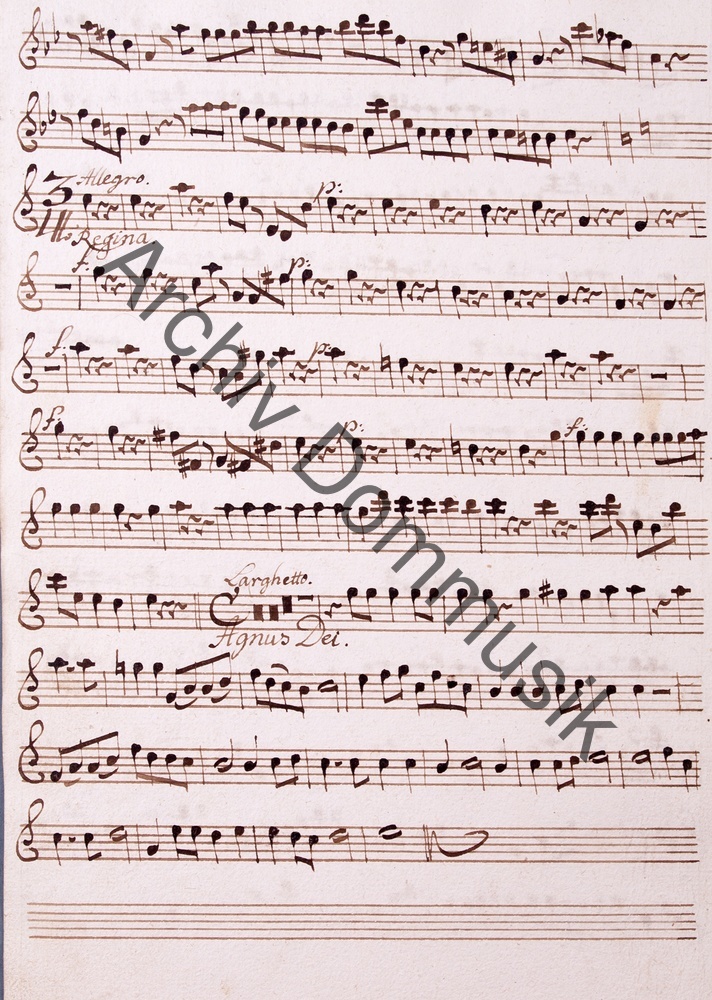 Allegro.
3
4
p:
Regina
f: p:
f: p:
f: p: f:
Larghetto.
C
Agnus Dei.
Archiv Dommusik